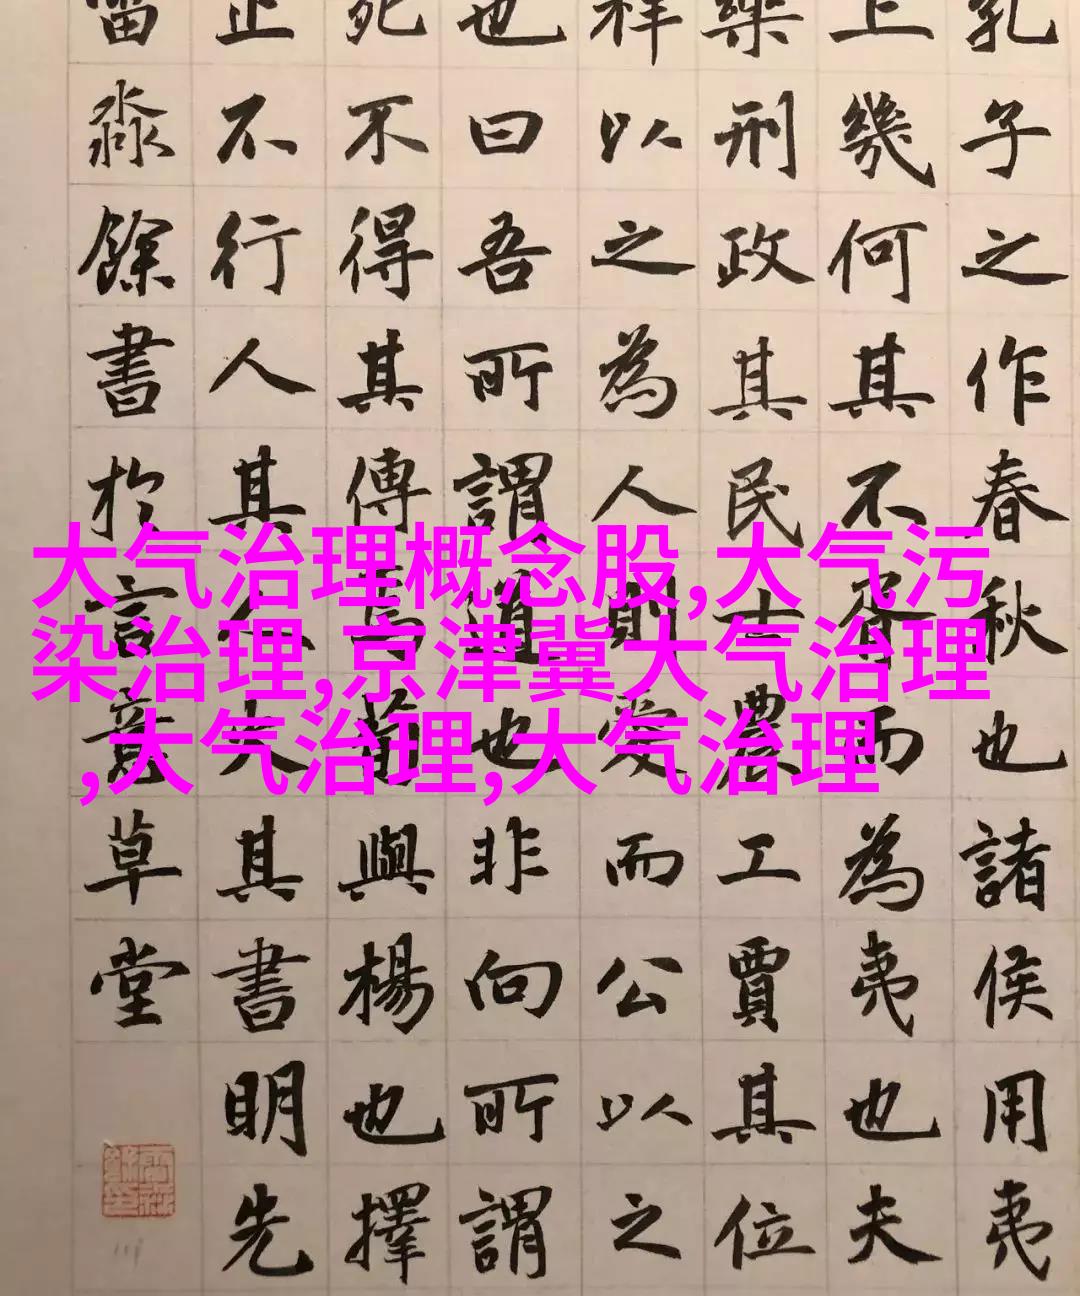 大气治理概念股,大气污
染治理,京津冀大气治理
,大气治理,大气治理
孔子之作春秋也諸侯用夷
上幾何其不胥而為夷也夫
樂刑政其民士農工賈其位
祥以之為人則愛而公以之
也曰吾所謂道也非向所謂
死不得其傳焉荀與楊也擇
止不行人其人火其書明先
淼餘書於言意草堂